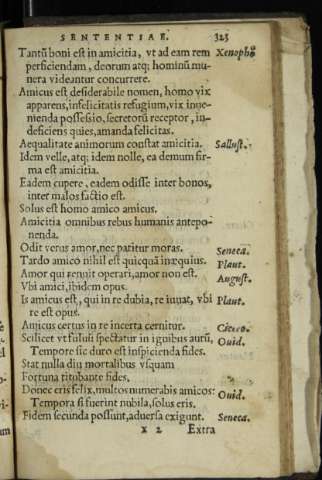 SENTENTIAE. 323
Tantũ boni est in amicitia, vt ad eam rem Xenophõ
perficiendam, deorum atq; hominũ mu-
nera videantur concurrere.
Amicus est desiderabile nomen, homo vix
apparens, infelicitatis refugium, vix inue-
nienda possessio, secretorũ receptor, in-
desiciens quies, amanda felicitas.
Aequalitate animorum constat amicitia. Sallust.
Idem velle, atq; idem nolle, ea demum fir-
ma est amicitia.
Eadem cupere, eadem odisse inter bonos,
inter malos factio est.
Solus est homo amico amicus.
Amicitia omnibus rebus humanis antepo-
nenda.
Odit verus amor, nec patitur moras. Seneca.
Tardo amico nihil est quicquã inæquius. Plaut.
Amor qui renuit operari, amor non est. August.
Vbi amici, ibidem opus.
Is amicus est, qui in re dubia, re iuuat, vbi Plaut.
re est opus.
Amicus certus in re incerta cernitur. Cicero.
Scilicet vt fuluũ spectatur in ignibus aurũ, Ouid.
Tempore sic duro est inspicienda fides.
Stat nulla diu mortalibus vsquam
Fortuna titubante fides.
Donec eris felix, multos numerabis amicos: Ouid.
Tempora si fuerint nubila, solus eris.
Fidem secunda possunt, aduersa exigunt. Seneca.
x 2 Extra